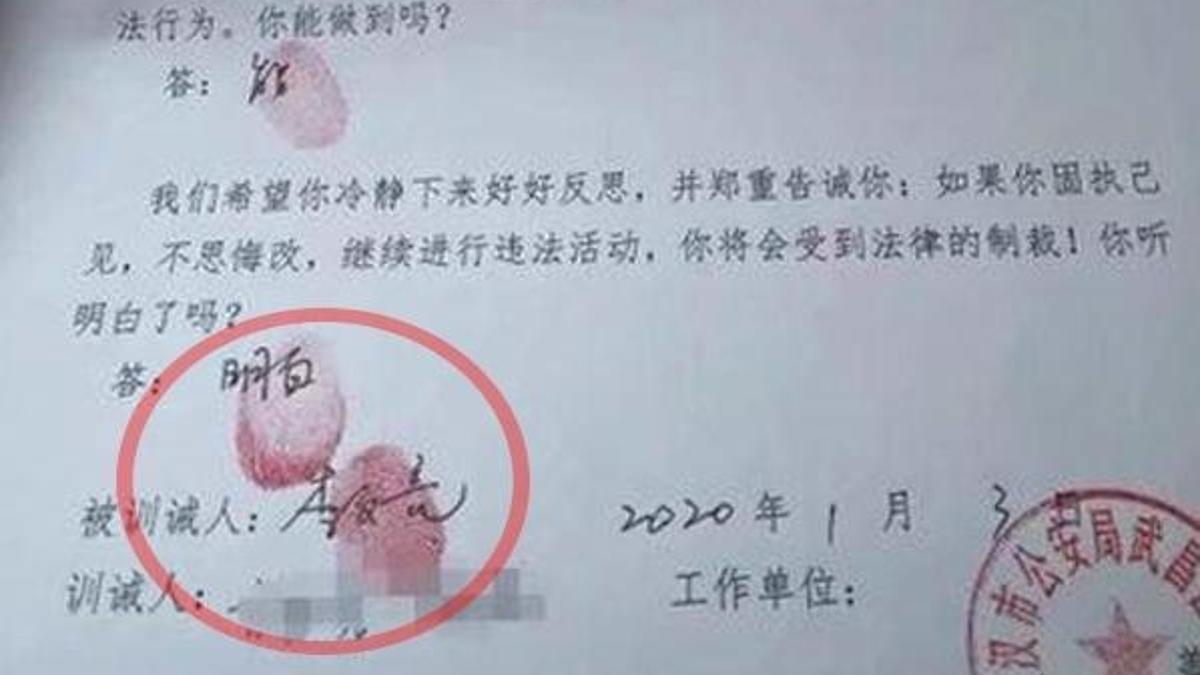 法行为。你能做到吗？
答：能
我们希望你冷静下来好好反思，并郑重告诫你：如果你固执己
见，不思悔改，继续进行违法活动，你将会受到法律的制裁！你听
明白了吗？
答：明白
被训诫人：李文亮 2020年1月3日
训诫人： 工作单位：
汉市公安局武昌